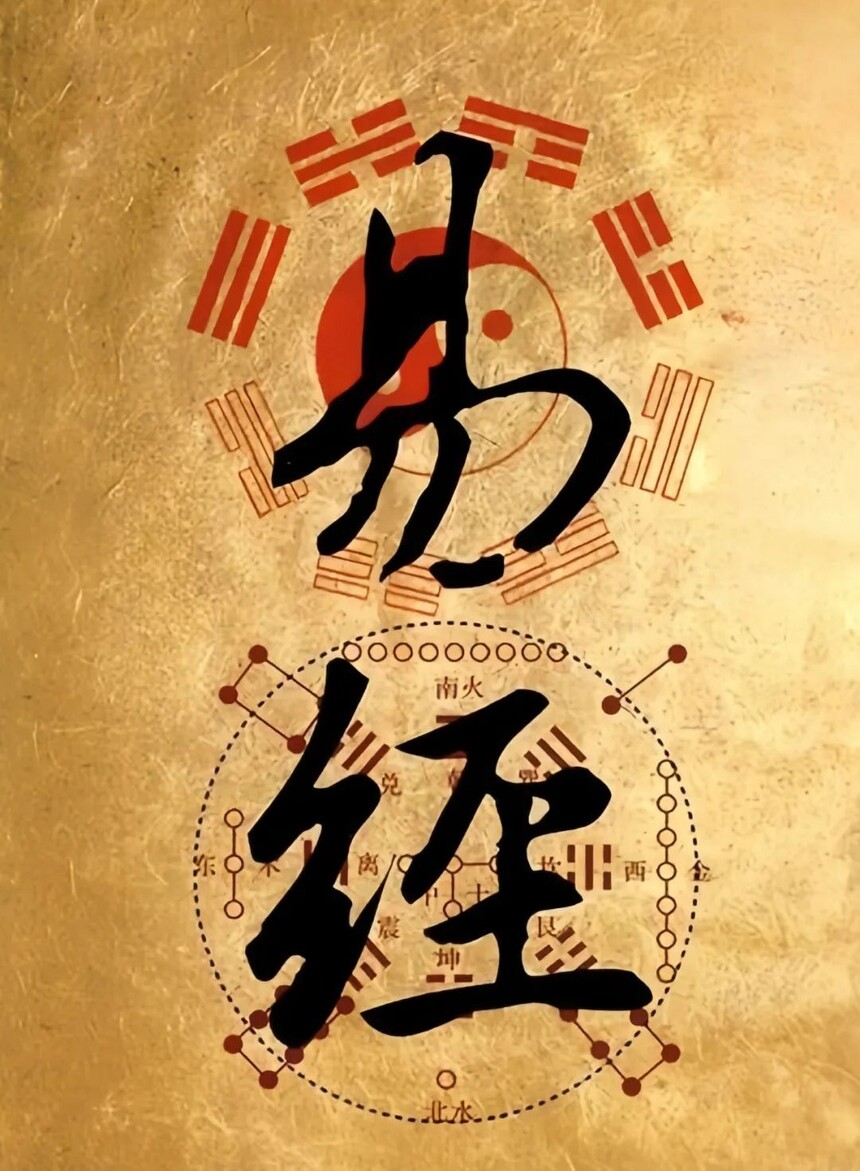 易
南火
经
兑 乾 巽
东 木 离 坎 西 金
中土
震 艮
坤
北水